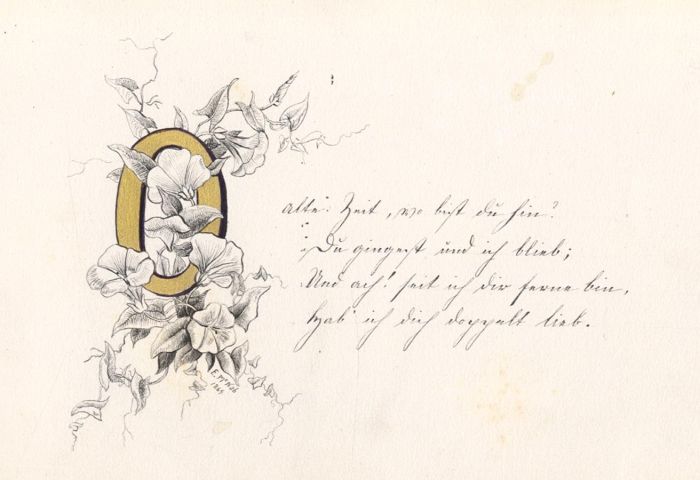 O
alte Zeit, wo bist du hin?
Du gingest und ich blieb;
Und ach! seit ich dir ferne bin,
Hab' ich dich doppelt lieb.